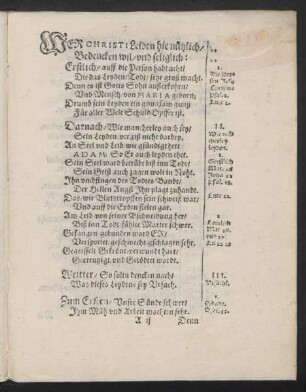 WER CHRISTI Leiden hie nützlich/
Bedencken wil/ vnd seliglich:
Erstlich/ auff die Person hab acht/
Die das Leyden/ Todt/ sehr groß macht.
Denn es ist Gotts Sohn außerkohrn/
Vnd Mensch/ von MARIA geborn;
Drumb sein Leyden ein gewissam
Für aller Welt Schuld Opffer ist.
Darnach/ Wie mancherley auch sey
Sein Leyden, vergiß nicht darbey.
An Seel vnd Leib wie gsündiget hett
ADAM: So Er auch leyden thet.
Sein Seel ward betrübt biß inn Todt/
Sein Geist auch zagen wolt in Noht.
Ihn vmbfingen des Todtes Band/
Der Hellen Angst Ihn plagt zuhandt.
Das/ wie Blutstropffen sein schweiß wat/
Vnd auff die Erden fallen gar.
Am Leib von seiner Bschneidung her/
Biß inn Tod/ fühlet Marter schwer.
Gefangen/ gebunden ward ER/
Verspottet/ geschmecht/ geschlagen sehr.
Gegeisselt/ Gekrönt/ verwundt hart/
Gecreutziget/ vnd Getödtet wardt.
Weitter/ So soltu dencken nach/
Was dieses Leydens sey Vrsach.
Zum Ersten/ Vnsre Sünde schwer/
Ihm Müh vnd Arbeit machten sehr.
A ij
Denn
I.
II.
III.